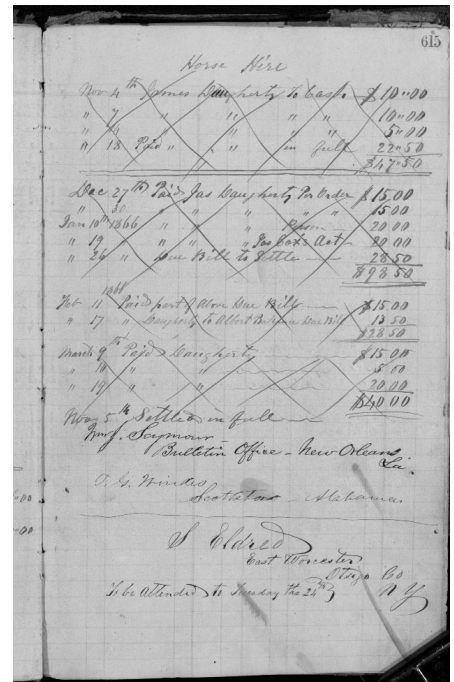 615
Horse Hire
Nov 4th James Daugherty To Cash $10"00
" 7 " " " " 10"00
" " " " " 5"00
" 18 Paid " " in full 22"50
$47"50
Dec 27th Paid Jas Daugherty Per Order $15.00
" 30 " " " " 15.00
Jan 10th 1866 " " " 20.00
" 19 " " " Jas Cox Act 20.00
" 26 " Due Bill to Settle 28.50
$98.50
Feb 11 1866 Paid part of Above Due Bill $15.00
" 17 " Daugherty to Albert Due Bill 13.50
$28.50
March 9th Paid Daugherty $15.00
" 10 " " 5.00
" 19 " " 20.00
$40.00
Nov 5th Settled in full
Wm J. Seymour
Bulletin Office - New Orleans
La.
O. G. Windes
Scottsboro Alabama.
S Eldred
East Worcester
Otsego Co
N Y
To be Attended to Tuesday the 24th